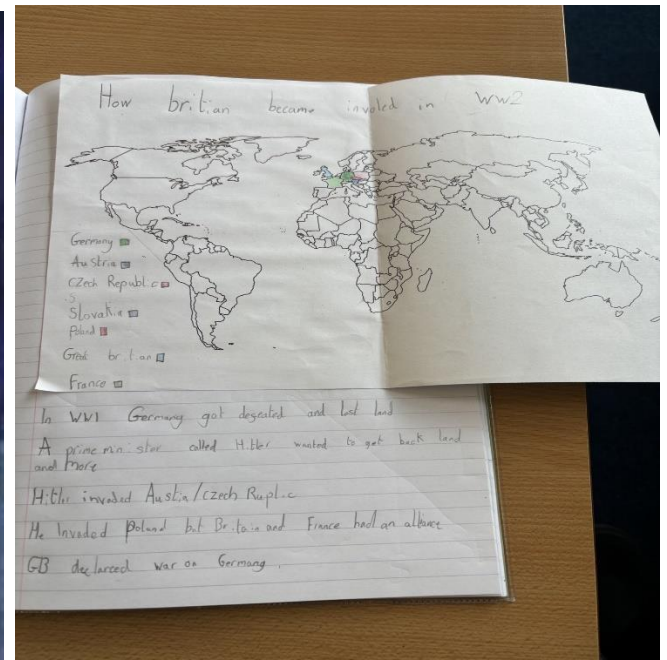 How britian became involed in WW2
Germany
Austria
Czech Republic
Slovakia
Poland
Great britian
France
In WW1 Germany got defeated and lost land
A prime minister called Hitler wanted to get back land
and more
Hitler invaded Austia/czech Ruplic
He Invaded Poland but Britain and France had an alliance
GB declarced war on Germany.